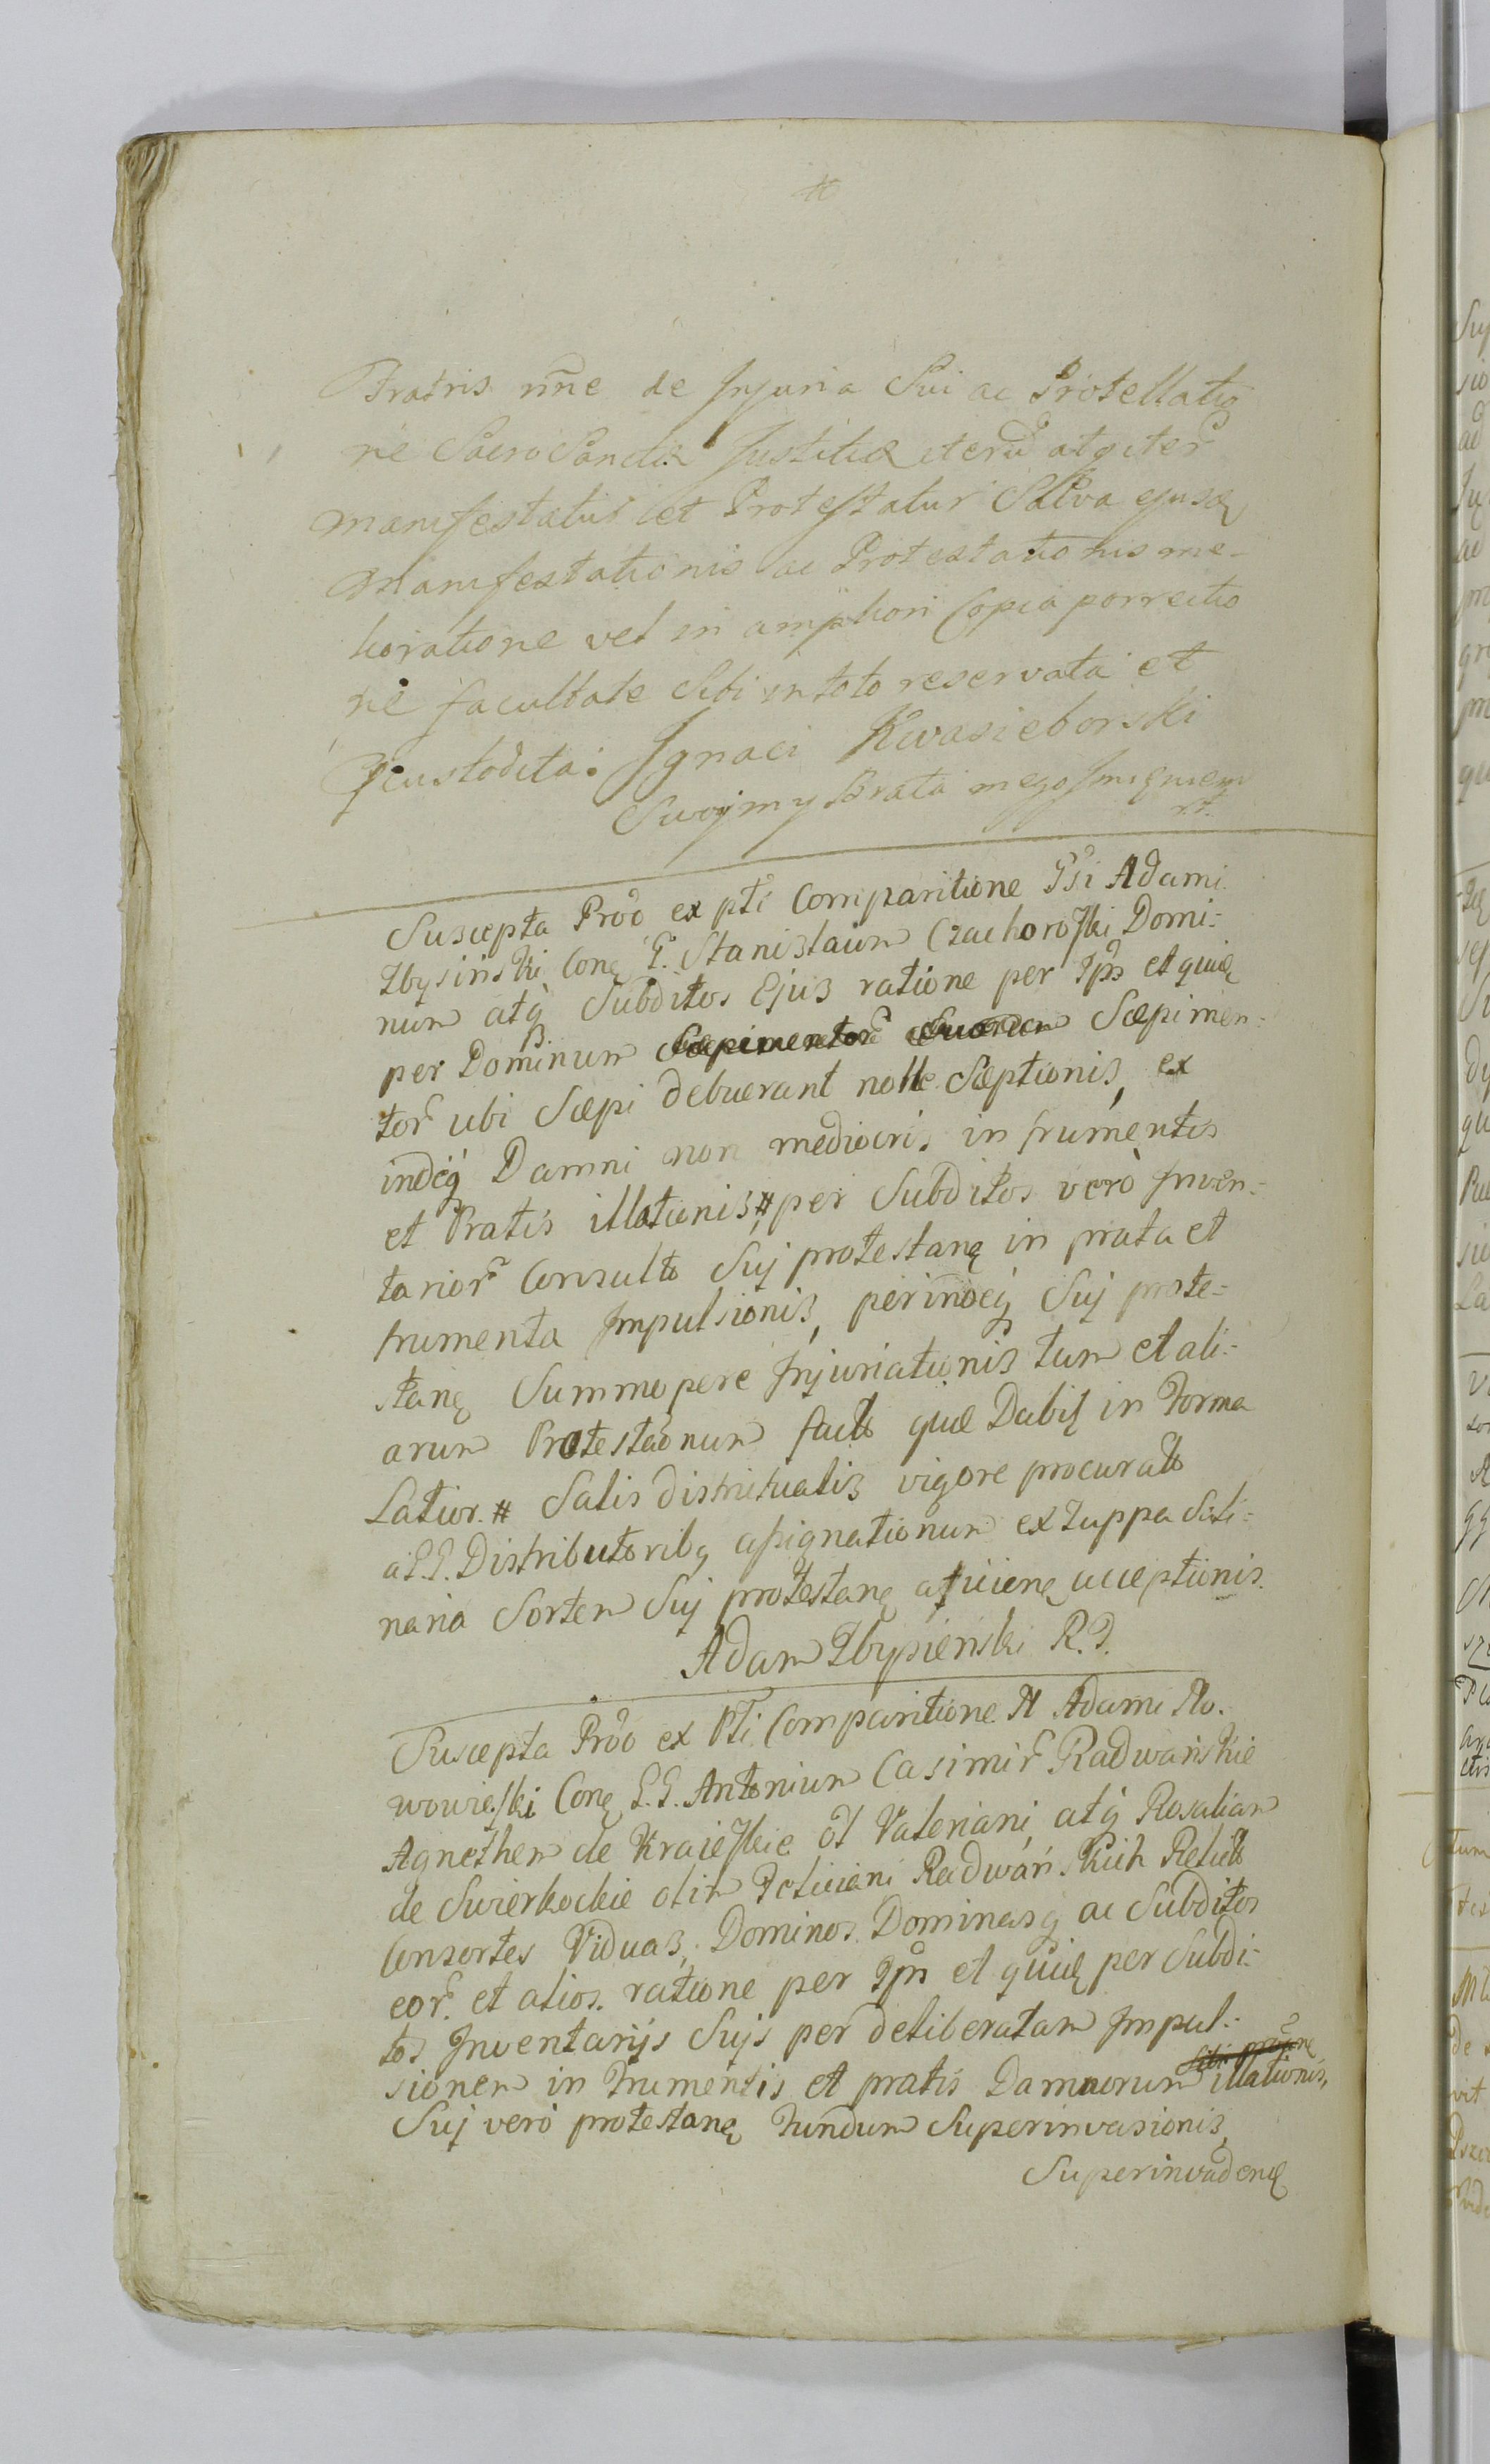 Fratris nne de Injuria Sui ac Protellatio
ne SacroSanctæ Justitiæ iterū atq iter
manifestatur et Protestatur Salva ejusd
Manifestationis ac Protestationis me-
lioratione vel in ampliori Copia porrectio
ne facultate Sibi in toto reservata et
custodita: Ignaci Kwasieborski
Swojm y Brata mego Imieniem
Suscepta Prõo ex pti Comparitione Gsi Adami
Zbysinski Con G. Stanislaum Czachoroski Domi-
num atq Subditos Ejus ratione per Ips et quid
per Dominum Sæpimen-
tor ubi Sæpi debuerant nolle Sæptionis, ex
indeq Damni non mediocris in frumentis
et Pratis illationis, # per Subditos verò Inven-
tarior Consulto Suj protestan in prata et
frumenta Impulsionis, perindeq Suj prote-
stan Summopere Injuriationis tum et ali-
arum Protestaonum facto quæ Dabit in Forma
Latior. # Salis districtualis vigore procurato
a G.G. Distributorib assignationum ex Zuppa Sali-
naria Sortem Suj protestan acceptionis.
Adam Zbysieński R.P.
Suscepta Prõo ex Pti Comparitione N Adami No-
wowieski Con G.G. Antonium Casimir Radwańskie
Agnethem de Kraieskie ol Valeriani, atq Rosaliam
de Swierkockie olim Feliciani Radwańskich Relicto
Consortes Viduas, Dominos Dominasq ac Subditos
eor. et alios. ratione per Ips et quid per Subdi-
tos Inventarijs Sujs per deliberatam Impul-
sionem in Frumentis et pratis Damnorum illationis,
Suj verò protestan Fundum Superinvasionis,
Superinvaden